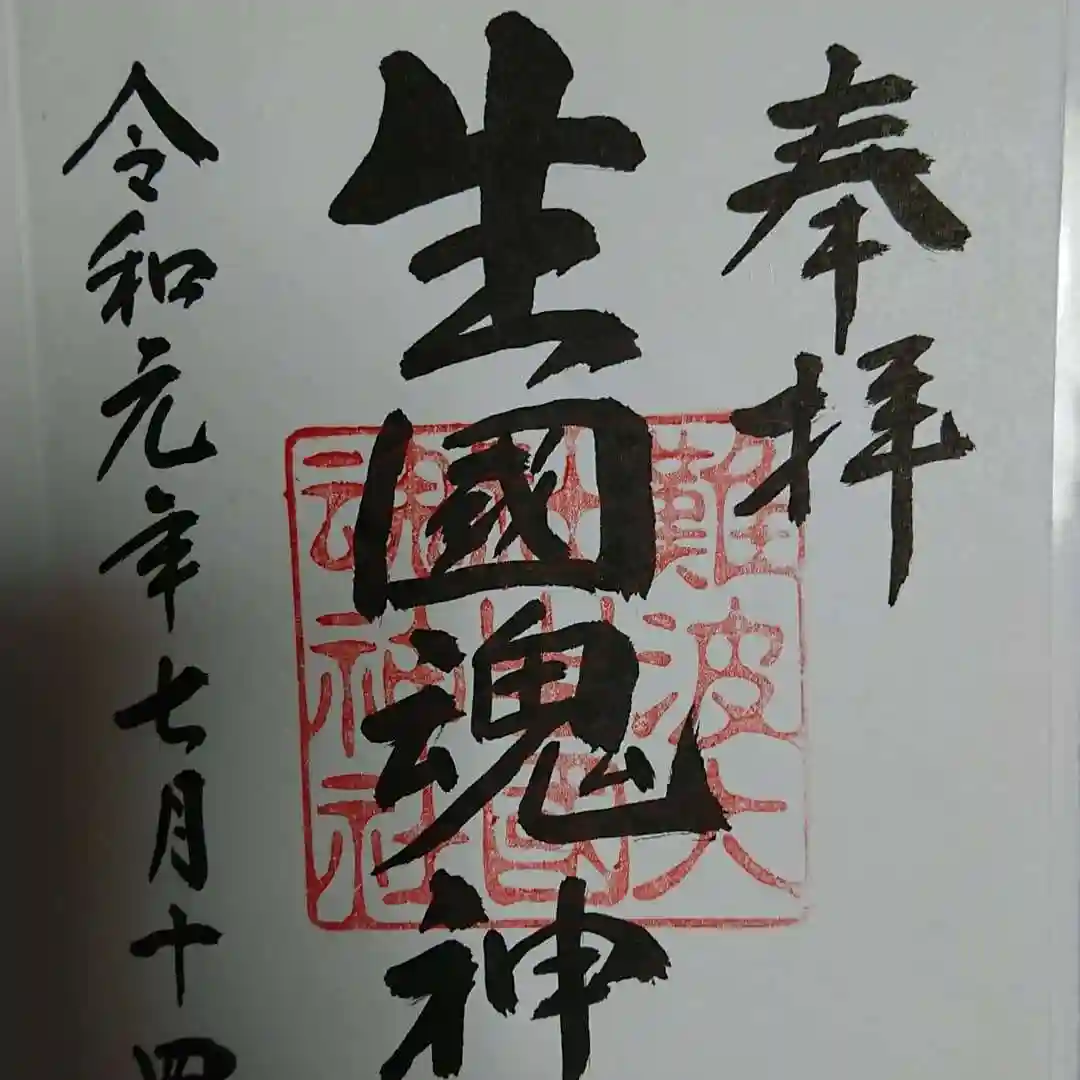 奉拝
生國魂神
難波大
社生國
魂神社
令和元年七月十四